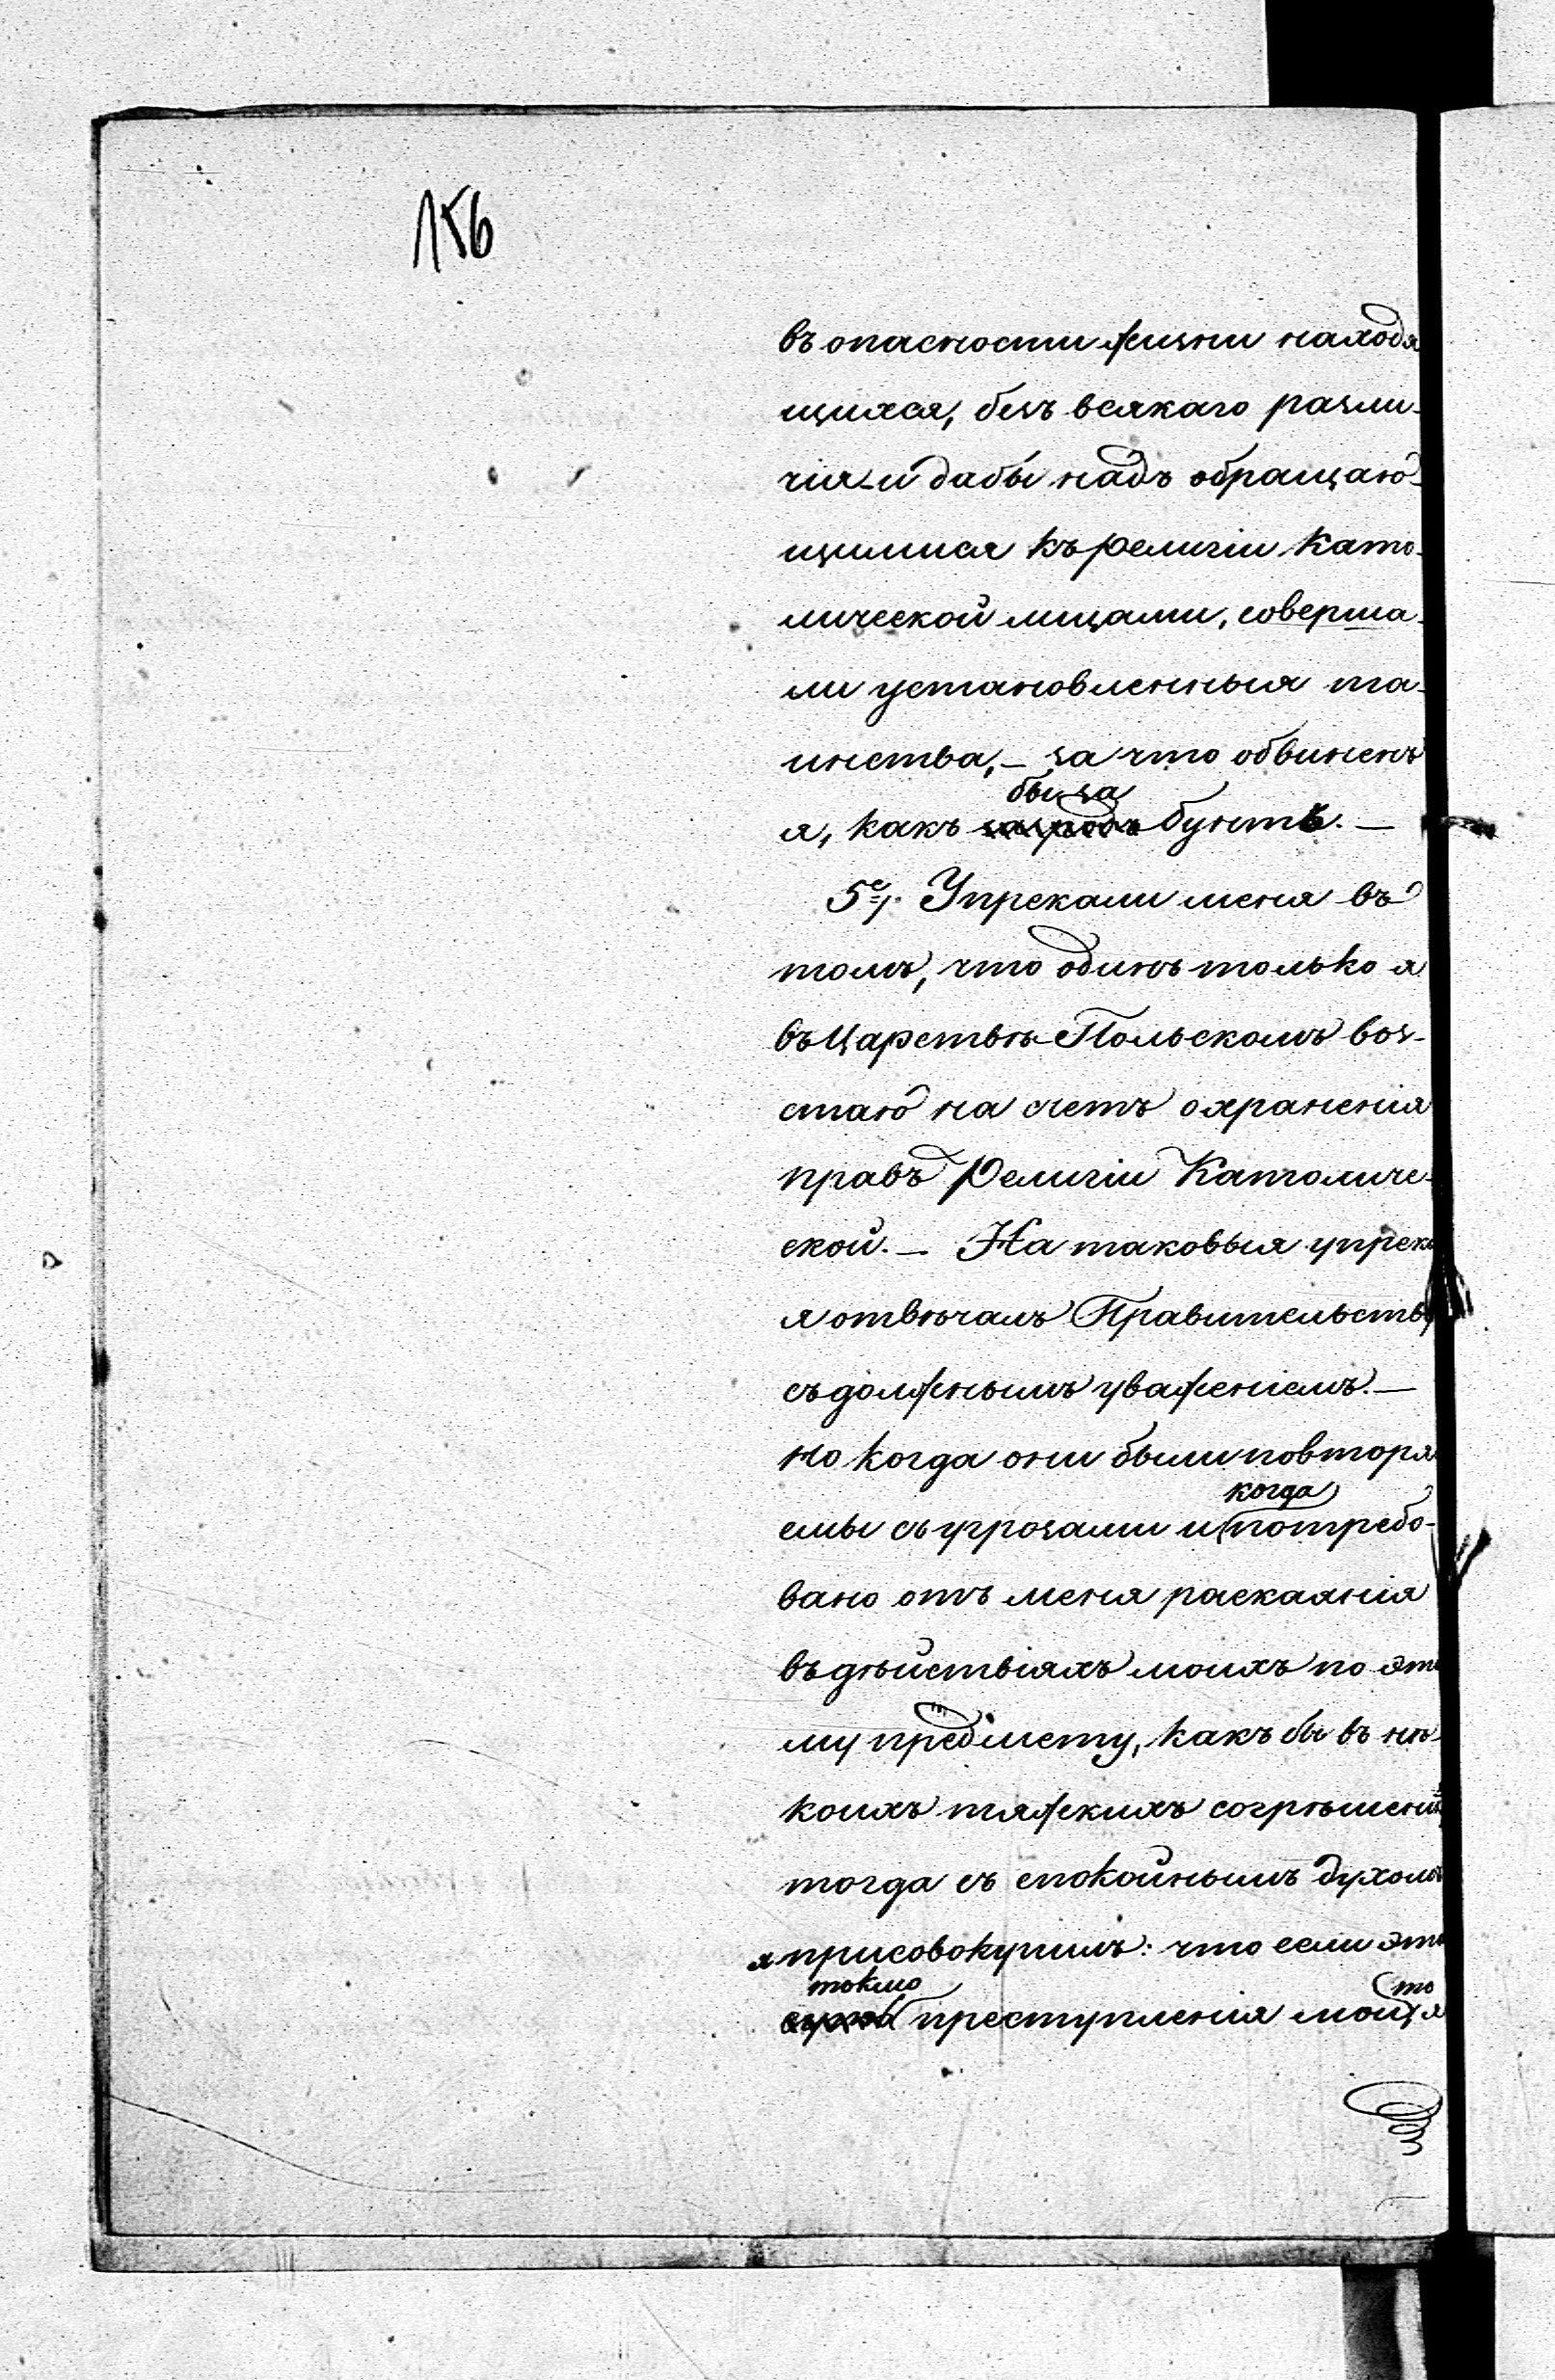 156
въ опасности жизни находя
щихся, безъ всякаго разли-
чія и дабы надъ обращаю-
щимися къ религіи Като-
лической лицами, соверша-
ли установленныя та-
инства, – за что обвиненъ
бы за
я, какъ бунтъ. –
5е/. Упрекали меня въ
томъ, что одинъ только я
въ Царствѣ Польскомъ воз-
стаю на счетъ охраненія
правъ Религіи Католиче-
ской. – На таковыя упреки
я отвѣчалъ Правительству
съ должнымъ уваженіемъ. –
Но когда они были повторя
когда
емы съ угрозами и потребо-
вано отъ меня раскаянія
въ дѣйствіяхъ моихъ по это
му предмету, какъ бы въ нѣ-
коихъ тяжкихъ согрѣшеній
тогда съ спокойнымъ духомъ
я присовокупилъ: что если это
токмо то
преступленія мои, я